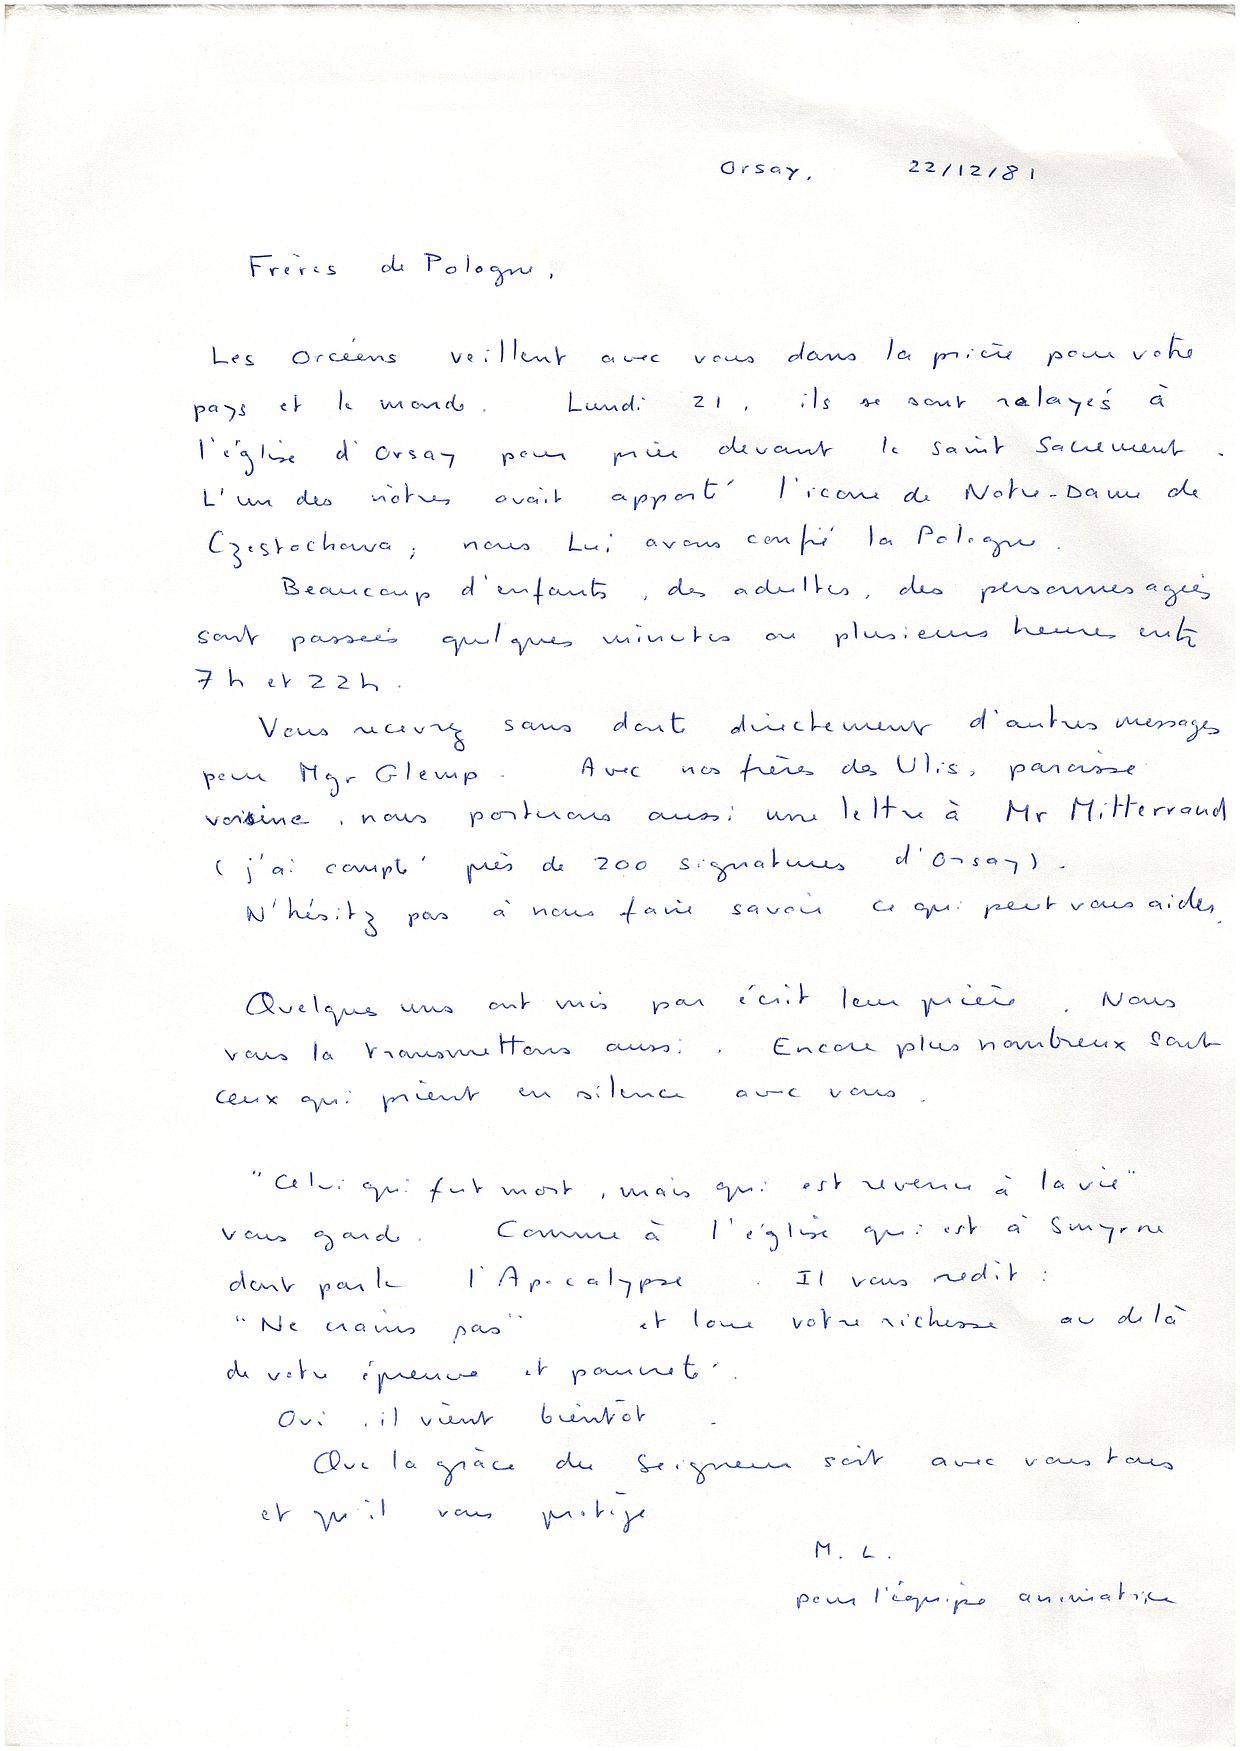 Orsay, 22/12/81
Frères de Pologne,
Les Orcéens veillent avec vous dans la prière pour votre
pays et le monde. Lundi 21, ils se sont relayés à
l'église d'Orsay pour prier devant le Saint Sacrement.
L'un des nôtres avait apporté l'icone de Notre-Dame de
Częstochowa ; nous Lui avons confié la Pologne.
Beaucoup d'enfants, des adultes, des personnes agées
sont passées quelques minutes ou plusieurs heures entre
7h et 22h.
Vous recevrez sans doute directement d'autres messages
pour Mgr Glemp. Avec nos frères des Ulis, paroisse
voisine, nous porterons aussi une lettre à Mr Mitterrand
(j'ai compté près de 200 signatures d'Orsay).
N'hésitez pas à nous faire savoir ce qui peut vous aider.
Quelques uns ont mis par écrit leur prière. Nous
vous la transmettons aussi. Encore plus nombreux sont
ceux qui prient en silence avec vous.
"Celui qui fut mort, mais qui est revenu à la vie"
vous garde. Comme à l'église qui est à Smyrne
dont parle l'Apocalypse. Il vous redit :
"Ne crains pas" et loue votre richesse au delà
de votre épreuve et pauvreté.
Oui, il vient bientôt.
Que la grâce du Seigneur soit avec vous tous
et qu'il vous protège
M. L.
pour l'équipe animatrice